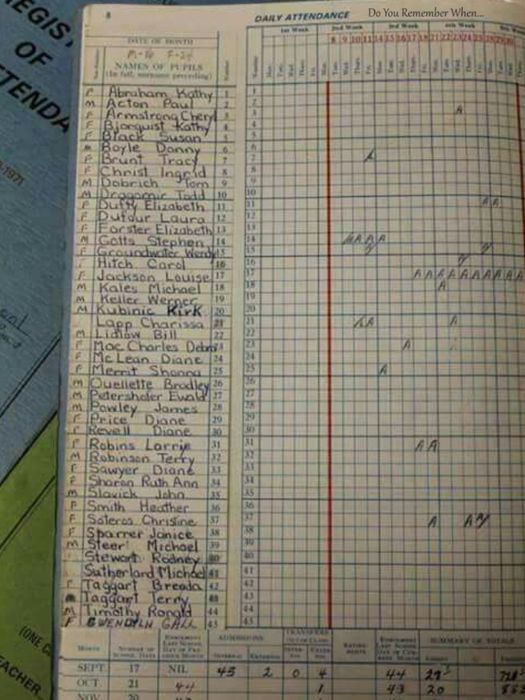 Do You Remember When...
8
DAILY ATTENDANCE
REGIS
OF
TTENDA
-1971
DATE OF MONTH
1st Week 2nd Week 3rd Week 4th Week
8 9 10 11 14 15 16 17 18 21 22 23 24 25 28 29 30
M-16 F-24
NAMES OF PUPILS
(In full, surname preceding)
F Abraham Kathy 1
M Acton Paul 2
F Armstrong Cheryl 3
F Bjorquist Kathy 4
F Black Susan 5
M Boyle Danny 6
F Brunt Tracy 7
F Christ Ingrid 8
M Dobrich Tom 9
M Dragomir Todd 10
F Duffy Elizabeth 11
F Dufour Laura 12
F Forster Elizabeth 13
M Gotts Stephen 14
F Groundwater Wendy 15
F Hitch Carol 16
F Jackson Louise 17
M Kales Michael 18
M Keller Werner 19
M Kubinic Kirk 20
Lapp Charissa 21
M Lidlow Bill 22
F Mac Charles Debra 23
F McLean Diane 24
F Merrit Shonna 25
M Ouellette Bradley 26
M Petershofer Ewald 27
M Powley James 28
F Price Diane 29
F Revell Diane 30
F Robins Lorrie 31
M Robinson Terry 32
F Sawyer Diane 33
F Sharon Ruth Ann 34
M Slavick John 35
F Smith Heather 36
F Soteros Christine 37
F Sparrer Janice 38
M Steer Michael 39
Stewart Rodney 40
Sutherland Michael 41
F Taggart Brenda 42
Taggart Terry 43
M Timothy Ronald 44
F GWENDLYN GALL 45
MONTH NUMBER OF SCHOOL DAYS ENROLMENT LAST SCHOOL DAY OF PREVIOUS MONTH ADMISSIONS TRANSFERS OUT OF CLASS RETIREMENTS ENROLMENT LAST SCHOOL DAY OF MONTH SUMMARY OF TOTALS
SEPT. 17 NIL 45 2 0 4 44
OCT. 21 44 1 43 20
NOV. 20
(ONE C
EACHER